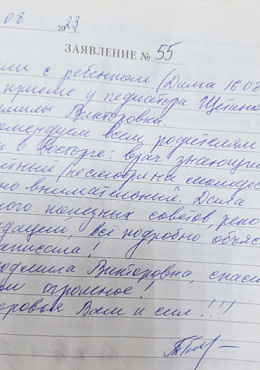 08 2023
ЗАЯВЛЕНИЕ № 55
ли с ребенком (Дима 16.08
приеме у педиатра
милы Викторовны
омендуем всем родителям
и в Восторге: врач знающий
тный (несмотря на молодос
но внимательный. Дала
ного полезных советов, реко
даций. Всё подробно объяс
аписала!
юдмила Викторовна, спаси
ам огромное!
оровья Вам и сил!!!)